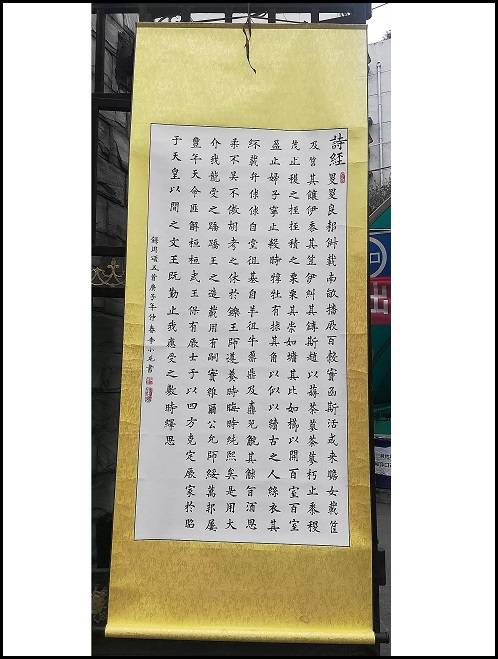 詩經 畟畟良耜俶載南畝播厥百穀實函斯活或來瞻女載筐
及筥其饟伊黍其笠伊糾其鎛斯趙以薅荼蓼荼蓼朽止黍稷
茂止穫之挃挃積之栗栗其崇如墉其比如櫛以開百室百室
盈止婦子寧止殺時犉牡有捄其角以似以續古之人絲衣其
紑載弁俅俅自堂徂基自羊徂牛鼐鼎及鼒兕觥其觩旨酒思
柔不吴不敖胡考之休於鑠王師遵養時晦時純熙矣是用大
介我龍受之蹻蹻王之造載用有嗣實維爾公允師綏萬邦屢
豐年天命匪解桓桓武王保有厥士于以四方克定厥家於昭
于天皇以間之文王既勤止我應受之敷時繹思
錄周頌五首庚子年仲春李小書
出